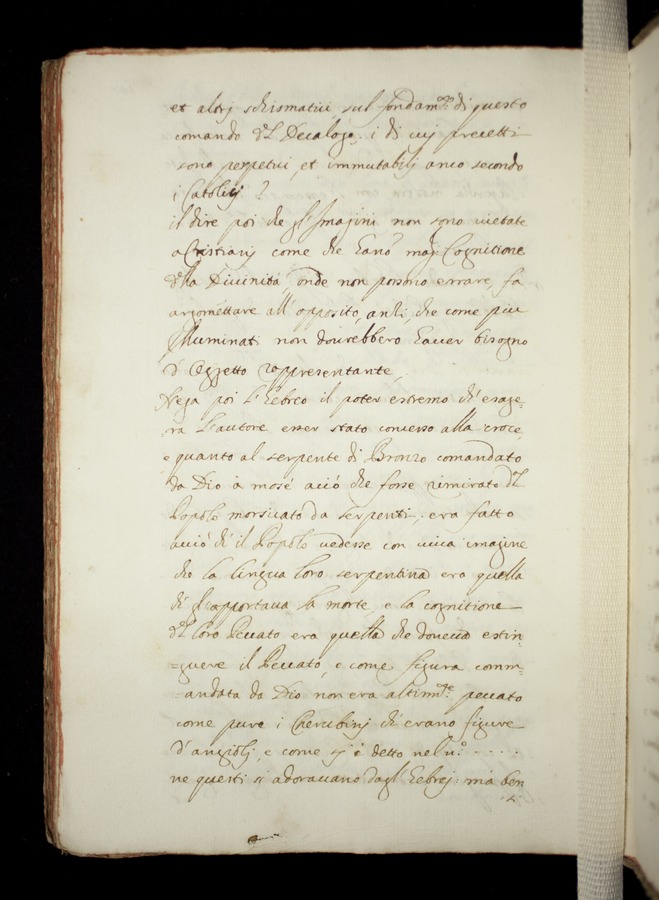 et altrj schismatici sul fondam.to di questo
comando del Decalogo. i di cuj precetti
sono perpetui, et immutabilj anco secondo
i Catolicj?
il dire poi che gl'Imagini non sono vietate
a Cristianj come che hano magg: Cognitione
della Divinità, onde non possono errare, fa
argomettare all'opposito, anzi, che come piu
Illuminati non dovrebbero haver bisogno
d'Oggetto rappresentante,
Nega poi l'Hebreo il poter estremo ch'esage=
ra l'autore esser stato concesso alla croce,
e quanto al serpente di Bronzo comandato
da Dio à mosè acciò che fosse rimirato del
Popolo morsicato da serpenti; era fatto
acciò ch'il Popolo vedesse con viva imagine
che la lingua loro serpentina era quella
ch'gl'apportava la morte, e la cognitione
del loro Peccato era quella che doveva estin=
=guere il Peccato, e come figura comm=
=andata da Dio non era altim.te peccato
come pure i Cherubinj ch'erano figure
d'angiolj, e come si è detto nel n.o . . . . .
ne questi si adoravano dagl'Eebrej: mà ben